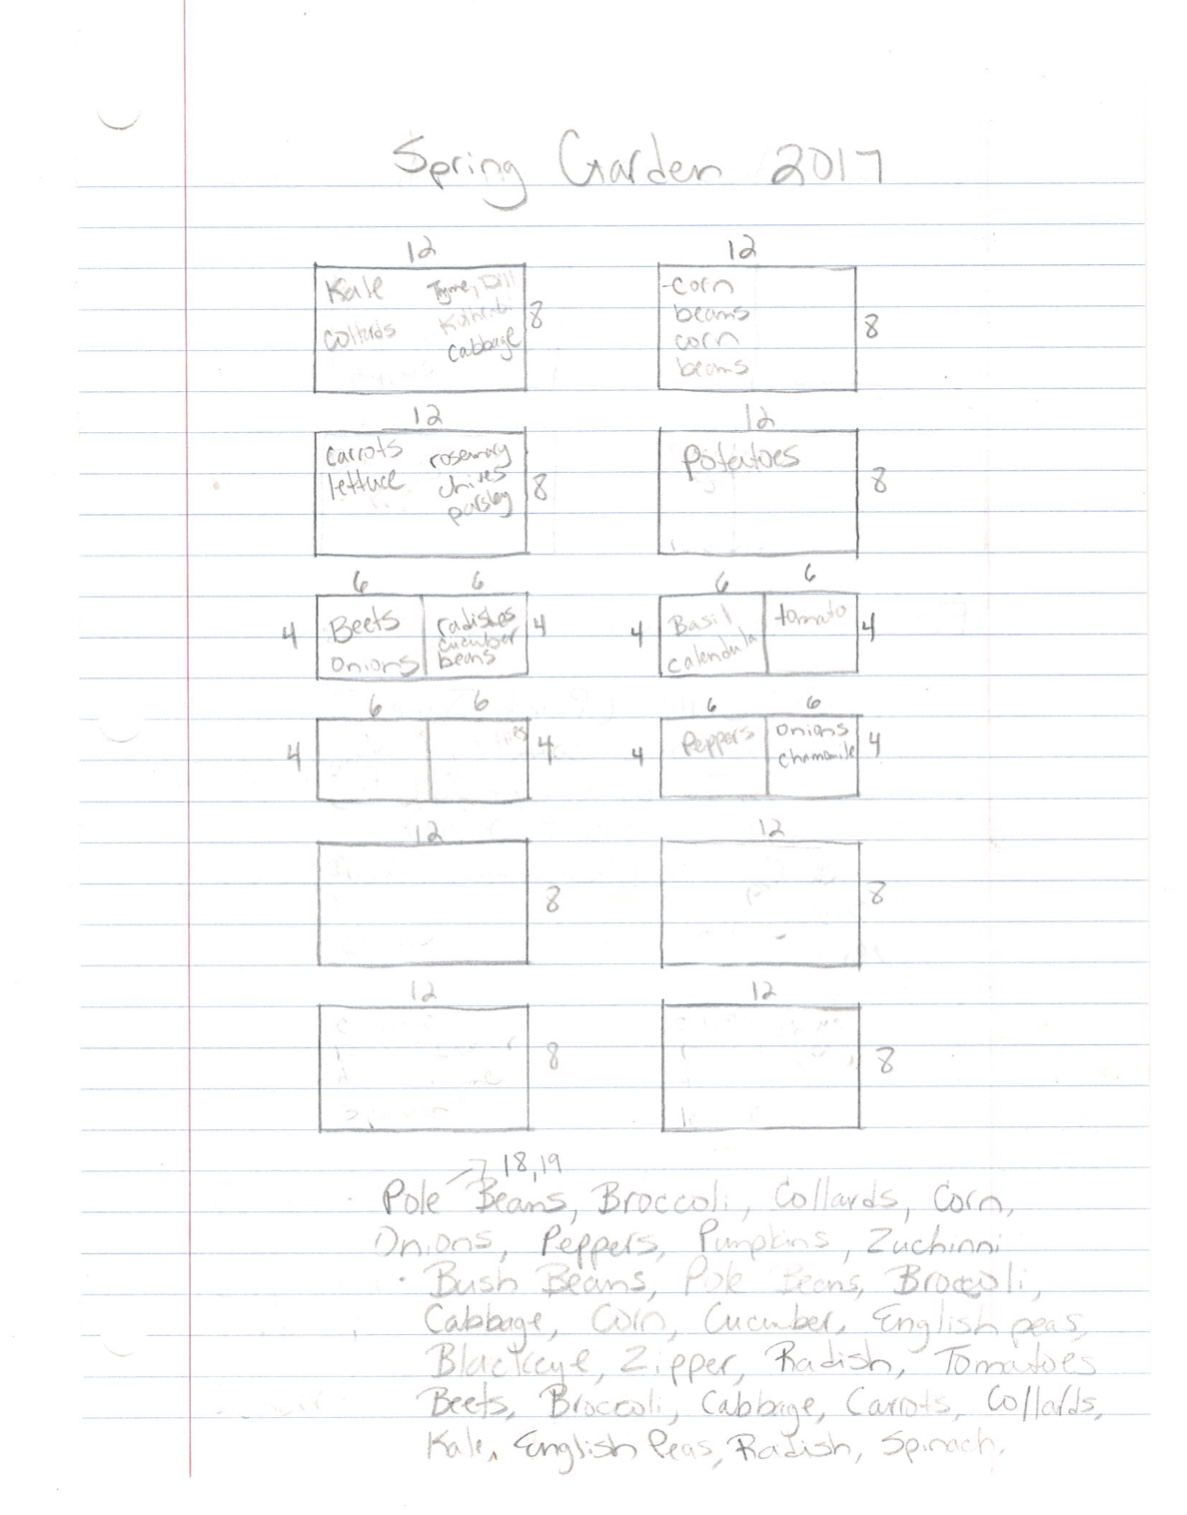 Spring Garden 2017
12 12
Kale Thyme, Dill
Collards Kohlrabi
cabbage
8
corn
beans
corn
beans
8
12 12
carrots rosemary
lettuce chives
parsley
8
Potatoes
8
6 6 6 6
4
Beets
onions
radishes
cucumber
beans
4
4
Basil
calendula
tomato
4
6 6 6 6
4 4
4
Peppers
onions
chamomile
4
12 12
8 8
12 12
8 8
18,19
Pole Beans, Broccoli, Collards, Corn,
Onions, Peppers, Pumpkins, Zuchinni
· Bush Beans, Pole Beans, Broccoli,
Cabbage, Corn, Cucumber, English peas,
Blackeye, Zipper, Radish, Tomatoes
Beets, Broccoli, Cabbage, Carrots, Collards,
Kale, English Peas, Radish, Spinach.